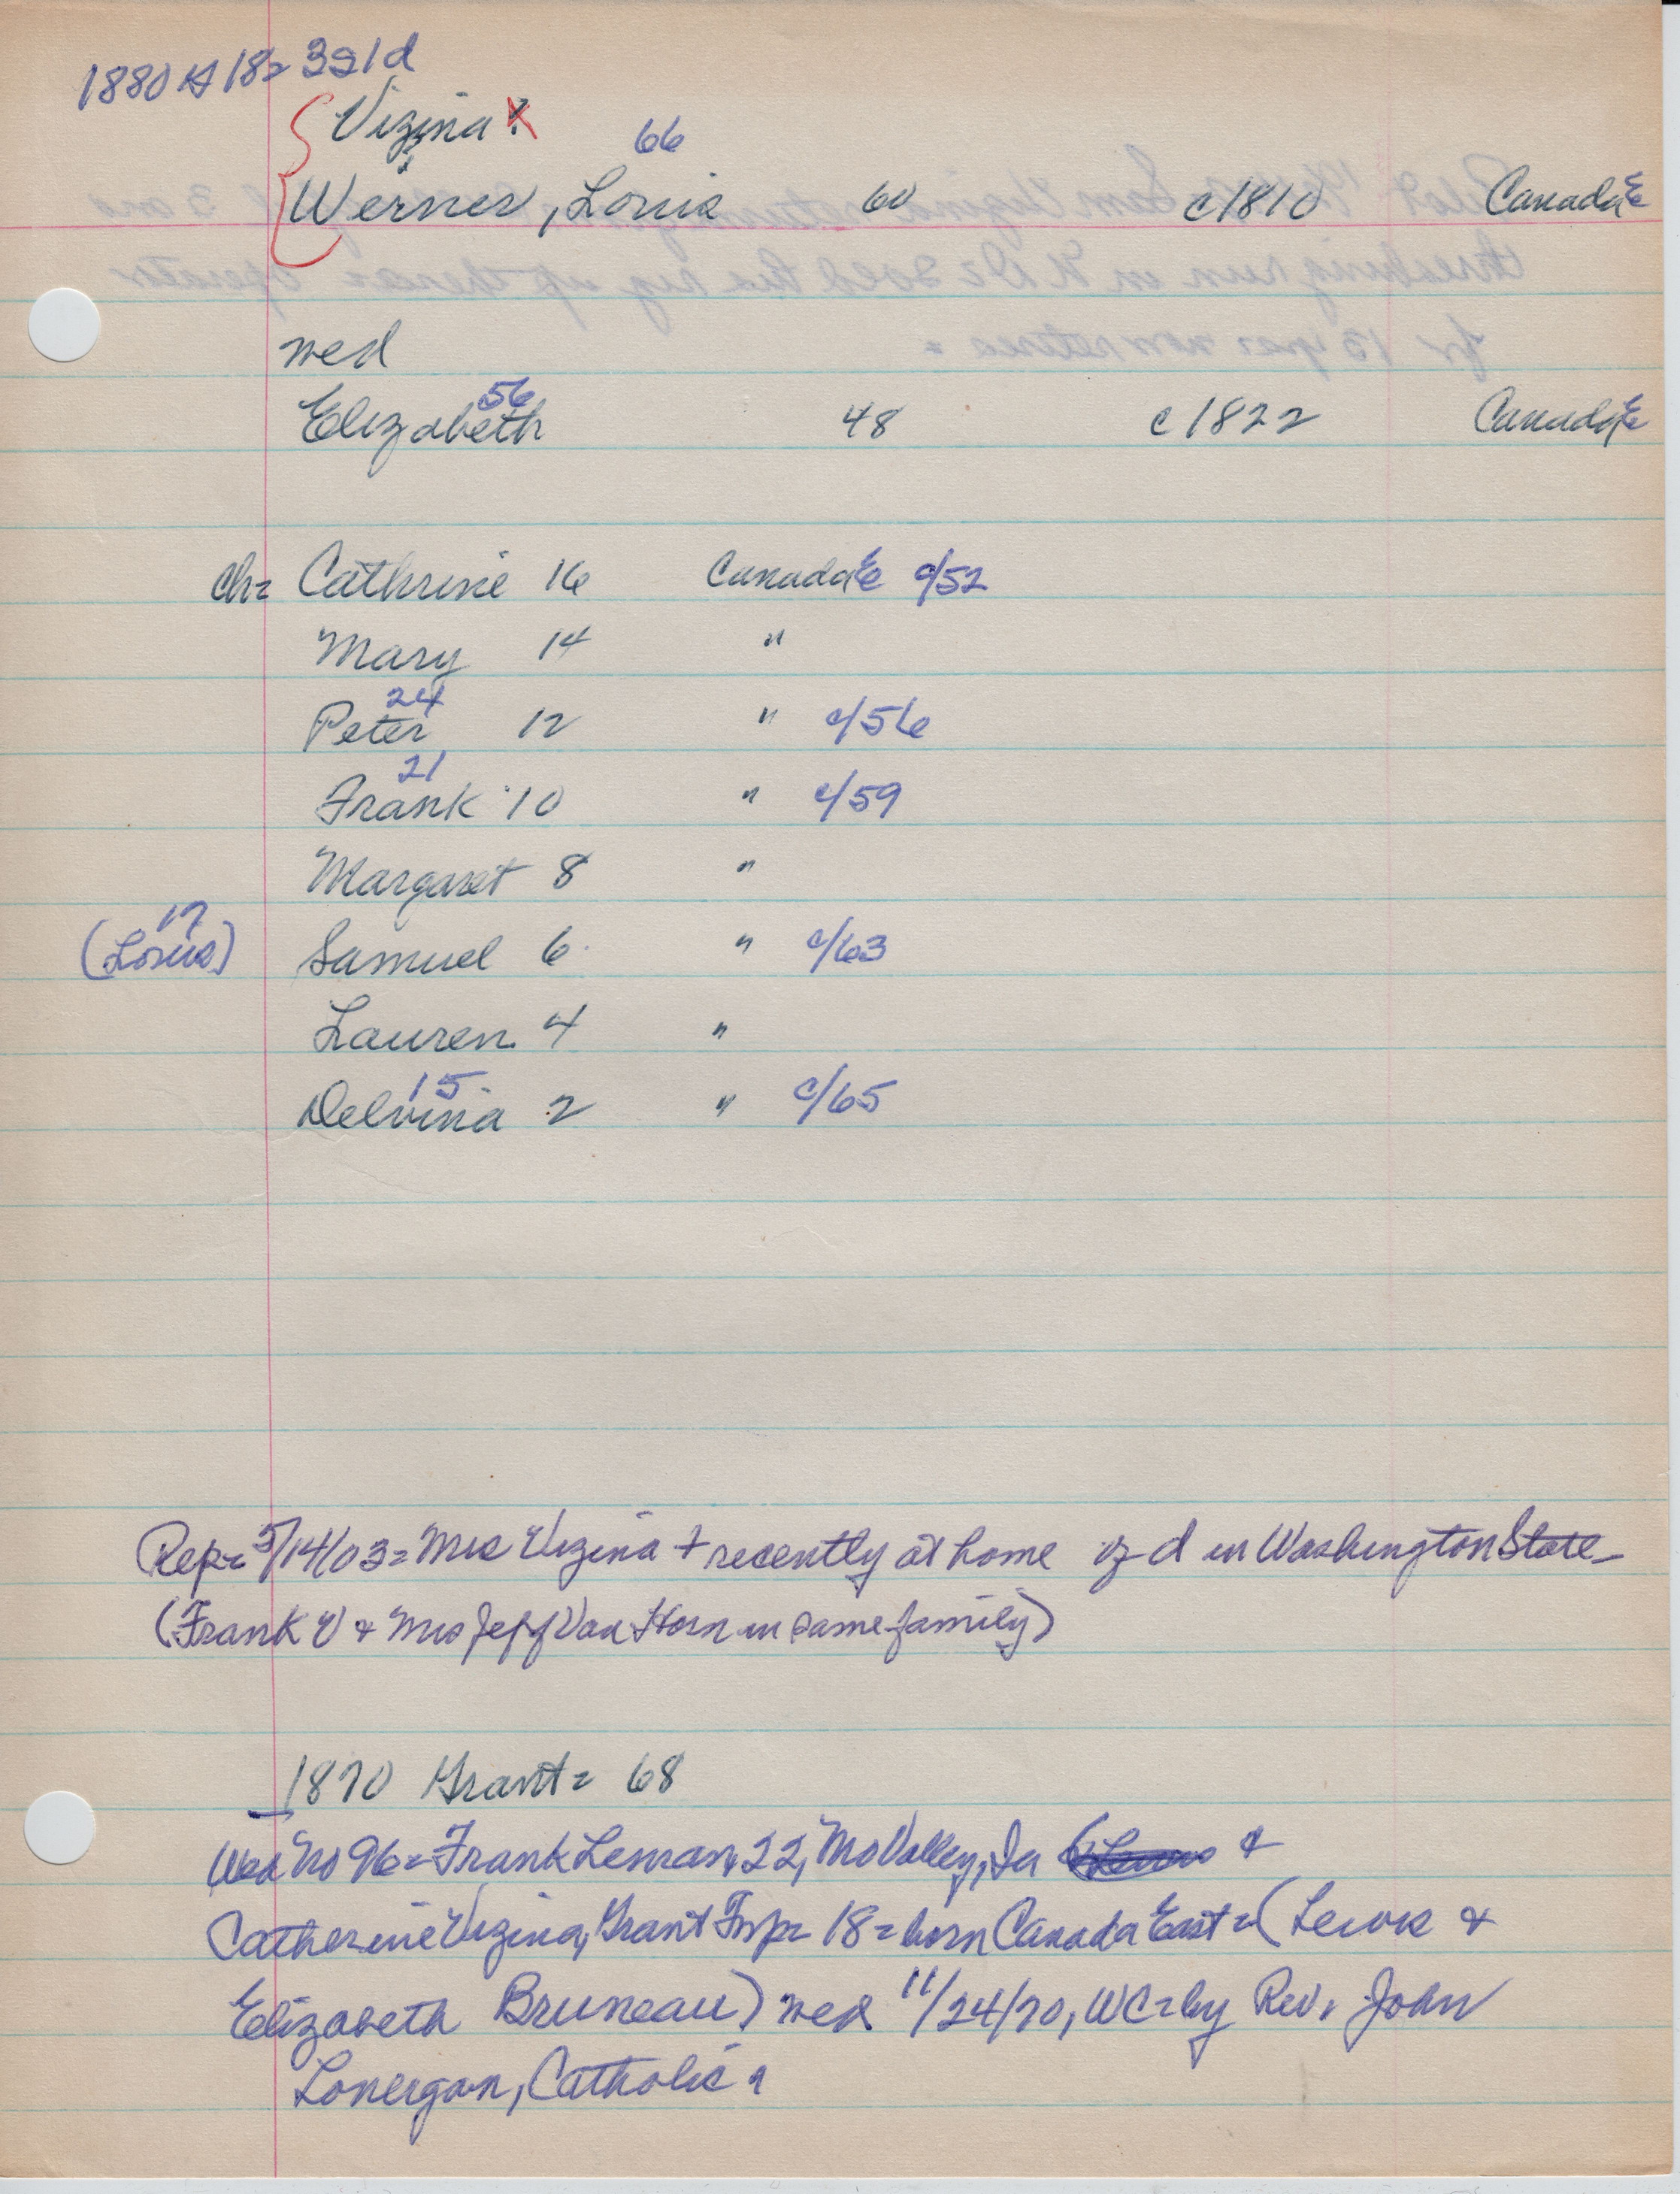 1880 182 321d
Vizina ?
66
Werner, Louis 60 c1810 Canada E
wed
56
Elizabeth 48 c1822 Canada E
ch= Cathrine 16 Canada E c/52
Mary 14 "
24
Peter 12 " c/56
21
Frank 10 " c/59
Margaret 8 "
17
(Louis) Samuel 6 " c/63
Lauren 4 "
15
Delvina 2 " c/65
Rep= 5/14/03= Mrs Vizina + recently at home of d in Washington State
(Frank V & Mrs Jeff Van Horn in same family)
1870 Grant= 68
Wed No 96= Frank 22, Mo Valley, Ia &
Catherine Vizina, Grant Twp= 18= born Canada East= (Lewis &
Elizabeth Bruneau) wed 11/24/70, WC= by Rev. John
Lonergan, Catholic